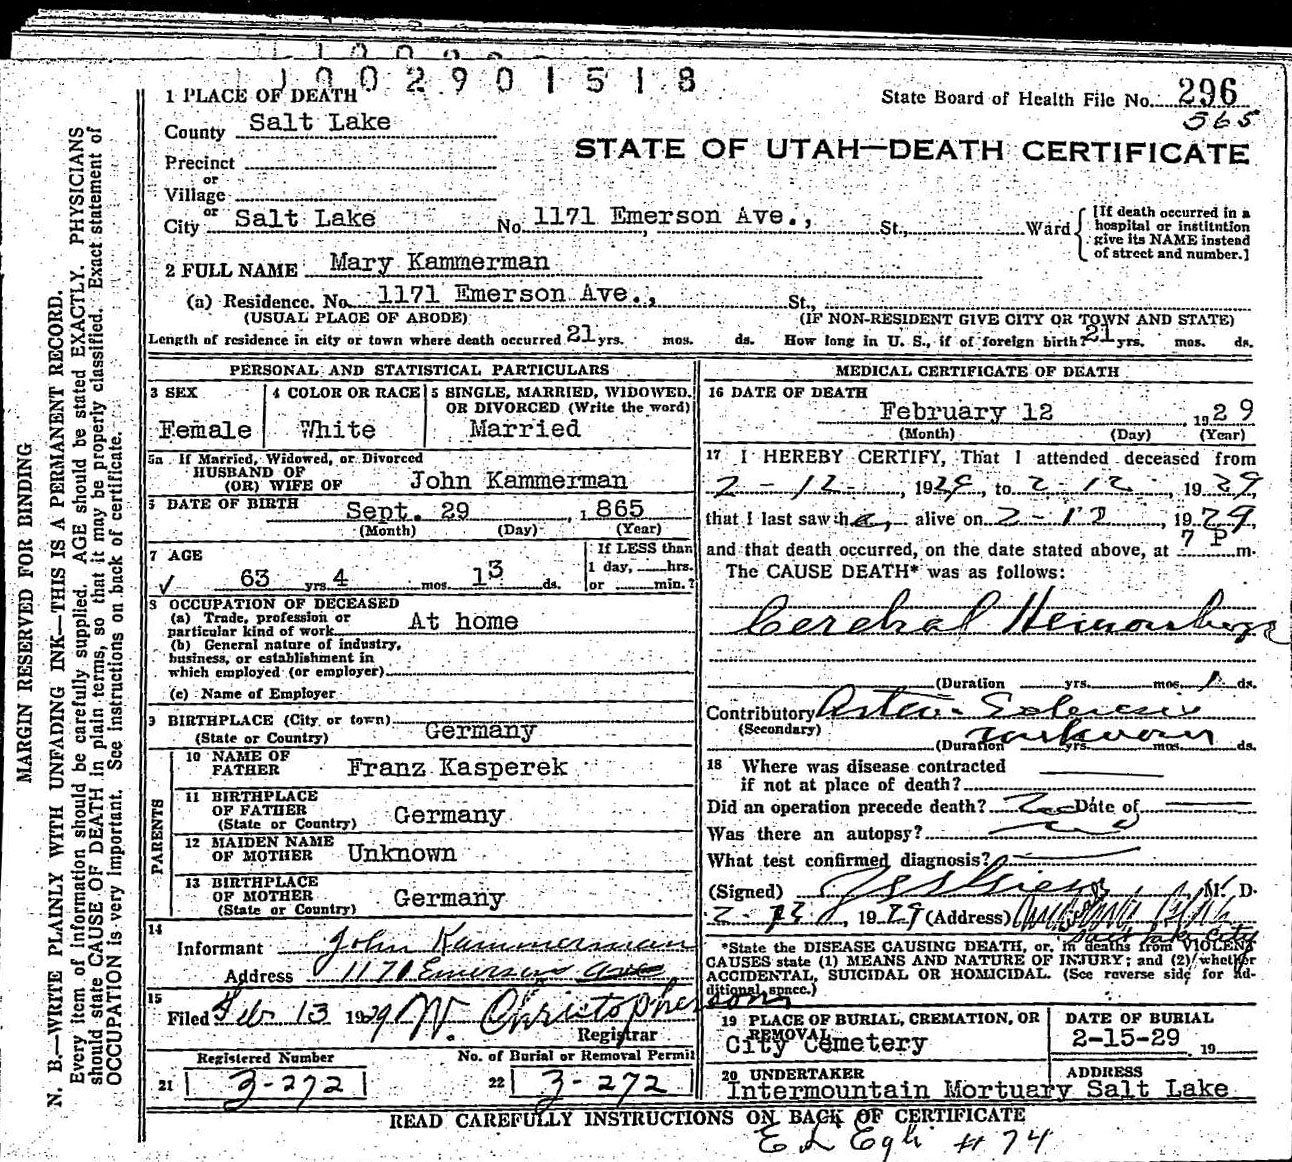 1002901518
1 PLACE OF DEATH
State Board of Health File No. 296
565
County Salt Lake
STATE OF UTAH—DEATH CERTIFICATE
Precinct
or
Village
or
City Salt Lake No. 1171 Emerson Ave., St., Ward
[If death occurred in a hospital or institution give its NAME instead of street and number.]
2 FULL NAME Mary Kammerman
(a) Residence. No. 1171 Emerson Ave., St.,
(USUAL PLACE OF ABODE) (IF NON-RESIDENT GIVE CITY OR TOWN AND STATE)
Length of residence in city or town where death occurred 21 yrs. mos. ds. How long in U. S., if of foreign birth? 21 yrs. mos. ds.
PERSONAL AND STATISTICAL PARTICULARS
3 SEX
Female
4 COLOR OR RACE
White
5 SINGLE, MARRIED, WIDOWED, OR DIVORCED (Write the word)
Married
5a If Married, Widowed, or Divorced
HUSBAND OF
(OR) WIFE OF John Kammerman
6 DATE OF BIRTH Sept. 29, 1865
(Month) (Day) (Year)
7 AGE
63 yrs. 4 mos. 13 ds.
If LESS than
1 day, hrs.
or min.?
8 OCCUPATION OF DECEASED
(a) Trade, profession or
particular kind of work At home
(b) General nature of industry,
business, or establishment in
which employed (or employer)
(c) Name of Employer
9 BIRTHPLACE (City or town)
(State or Country) Germany
PARENTS
10 NAME OF
FATHER Franz Kasperek
11 BIRTHPLACE
OF FATHER
(State or Country) Germany
12 MAIDEN NAME
OF MOTHER Unknown
13 BIRTHPLACE
OF MOTHER
(State or Country) Germany
14
Informant John Kammerman
Address 1171 Emerson ave
15
Filed Feb 13 1929 W. Christophersons
Registrar
Registered Number
21 3-272
No. of Burial or Removal Permit
22 3-272
MEDICAL CERTIFICATE OF DEATH
16 DATE OF DEATH
February 12 1929
(Month) (Day) (Year)
17 I HEREBY CERTIFY, That I attended deceased from
2-12-, 1929, to 2-12, 1929
that I last saw her alive on 2-12, 1929
and that death occurred, on the date stated above, at 7 P m.
The CAUSE DEATH* was as follows:
Cerebral Hemorrhage
(Duration yrs. mos. 1 ds.
Contributory Arterio-Sclerosis
(Secondary)
(Duration unknown yrs. mos. ds.
18 Where was disease contracted
if not at place of death?
Did an operation precede death? No Date of
Was there an autopsy? no
What test confirmed diagnosis?
(Signed) M. D.
2-13, 1929 (Address)
Salt Lake City
*State the DISEASE CAUSING DEATH, or, in deaths from VIOLENT
CAUSES state (1) MEANS AND NATURE OF INJURY; and (2) whether
ACCIDENTAL, SUICIDAL OR HOMICIDAL. (See reverse side for ad-
ditional space.)
19 PLACE OF BURIAL, CREMATION, OR REMOVAL
City Cemetery
DATE OF BURIAL
2-15-29 , 19
20 UNDERTAKER
Intermountain Mortuary
ADDRESS
Salt Lake
READ CAREFULLY INSTRUCTIONS ON BACK OF CERTIFICATE
E L Egli #74
MARGIN RESERVED FOR BINDING
N. B.—WRITE PLAINLY WITH UNFADING INK—THIS IS A PERMANENT RECORD.
Every item of information should be carefully supplied. AGE should be stated EXACTLY. PHYSICIANS
should state CAUSE OF DEATH in plain terms, so that it may be properly classified. Exact statement of
OCCUPATION is very important. See instructions on back of certificate.